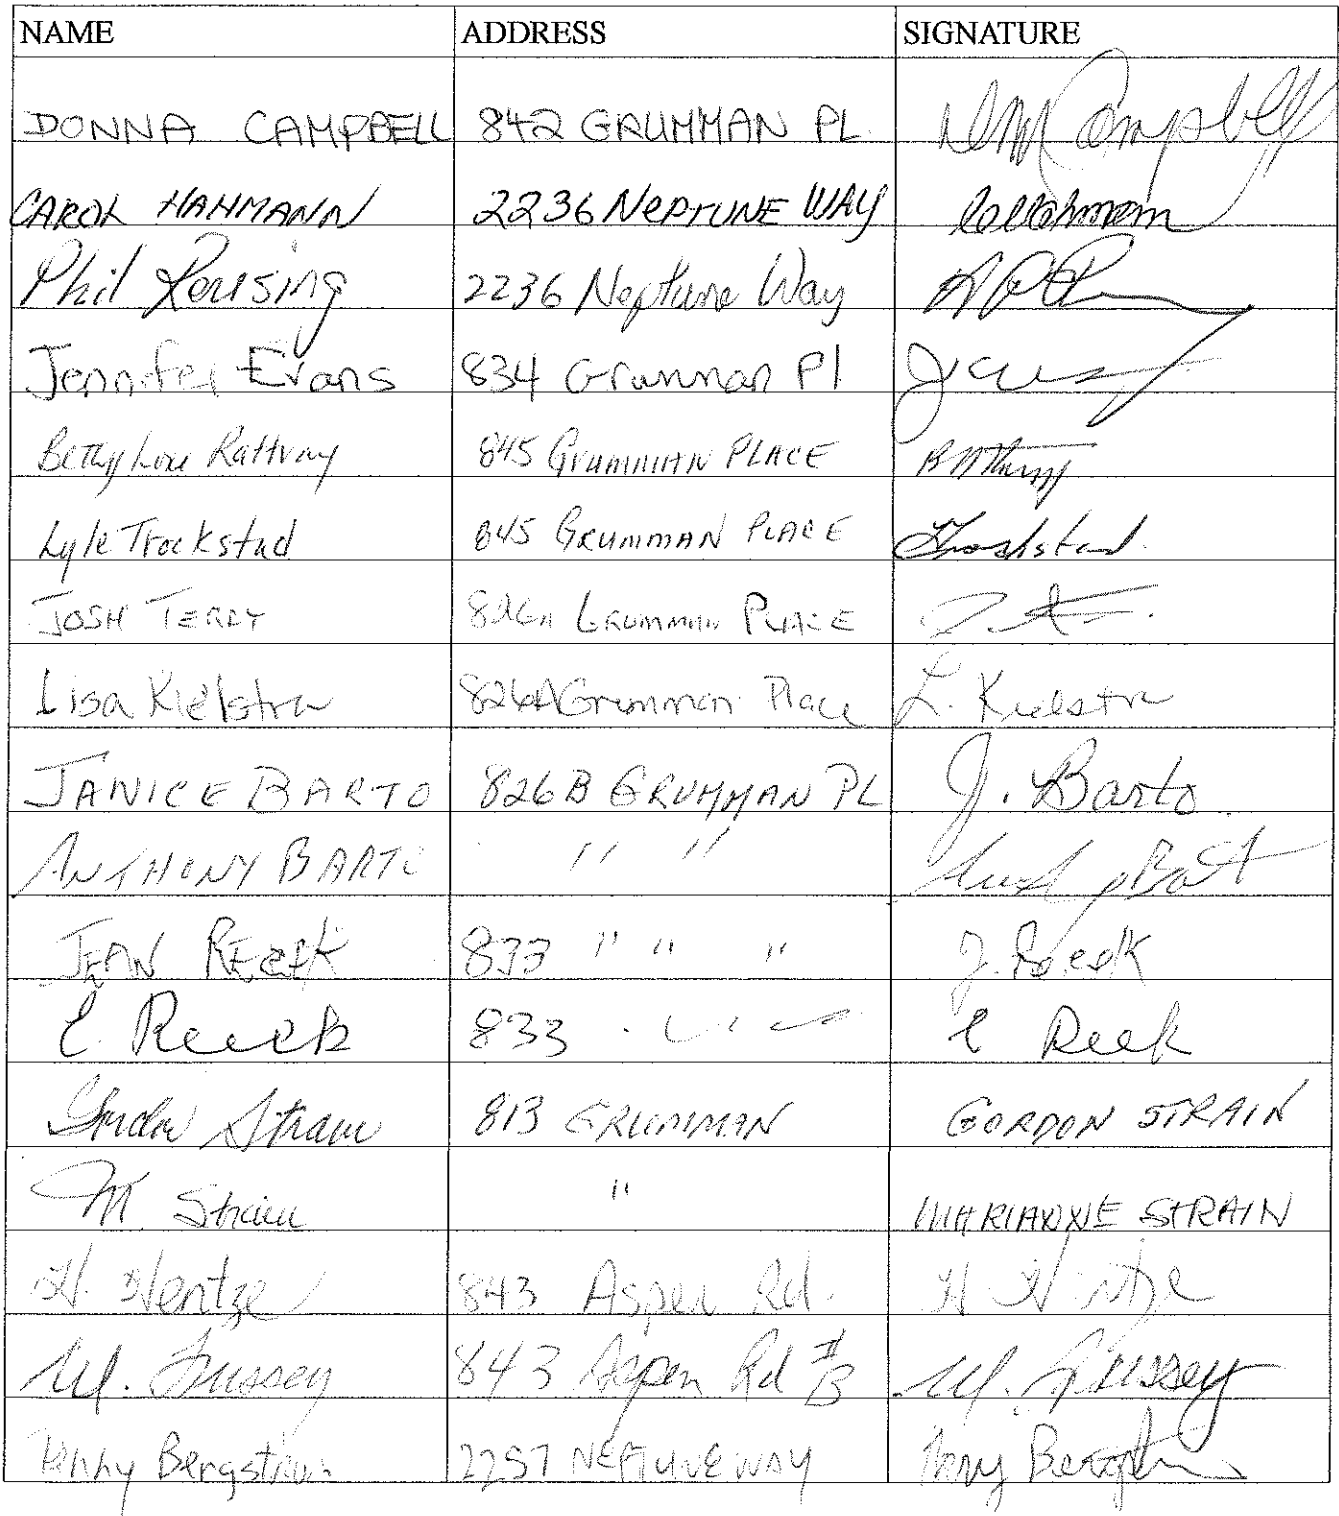 NAME ADDRESS SIGNATURE
DONNA CAMPBELL 842 GRUMMAN PL. DM Campbell
CAROL HAHMANN 2236 NEPTUNE WAY
Phil 2236 Neptune Way
Jennifer Evans 834 Grumman Pl
Betty Lou Rattray 845 GRUMMAN PLACE
Lyle Trockstad 845 GRUMMAN PLACE
JOSH TERRY 826A GRUMMAN PLACE
Lisa Kielstra 826A Grumman Place L. Kielstra
JANICE BARTO 826 B GRUMMAN PL J. Barto
ANTHONY BARTO " "
JEAN REEK 833 " " " J. Reek
E. Reek 833 E Reek
Gordon Strain 813 GRUMMAN GORDON STRAIN
M. Strain " MARIANNE STRAIN
H. Hentze 843 Aspen Rd. H Hentze
M. Fussey 843 Aspen Rd #B M. Fussey
Penny Bergstrom 2257 NEPTUNE WAY